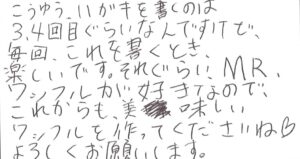 こうゆう、ハガキを書くのは
3.4回目ぐらいなんですけど、
毎回、これを書くとき、
楽しいです。それぐらい、MR.
ワッフルが好きなので、
これからも、美味しい
ワッフルを作ってくださいね♡
よろしくお願いします。